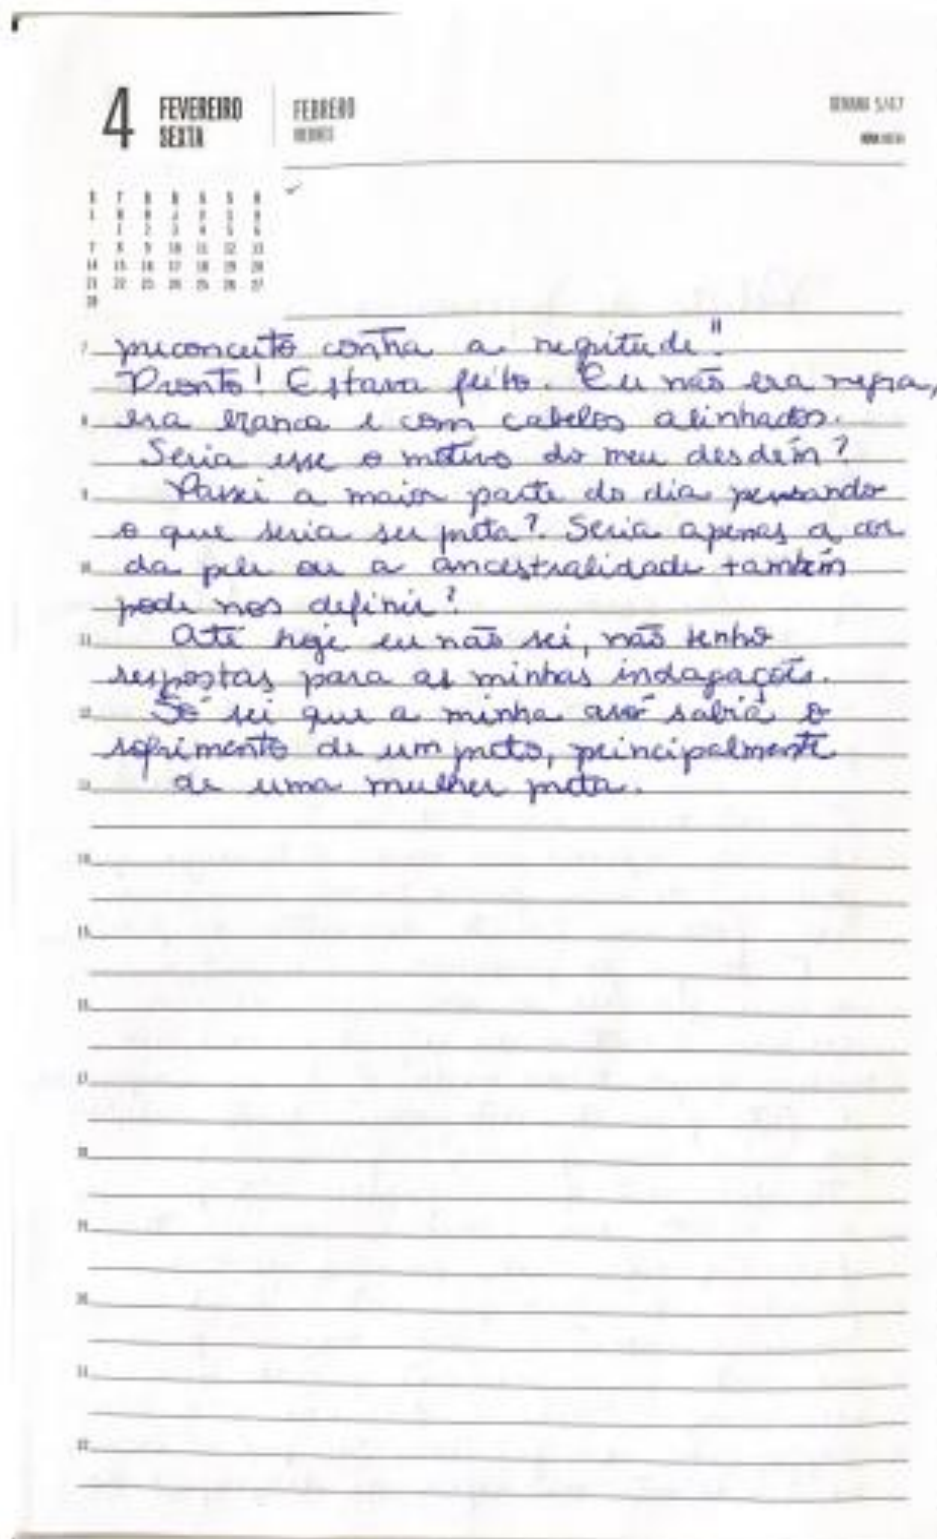 4 FEVEREIRO FEBRERO
SEXTA
SEMANA 5/47
7 8 9 10 11 12 13
14 15 16 17 18 19 20
21 22 23 24 25 26 27
28
7 preconceito contra a negritude"
Pronto! Estava feito. Eu não era negra,
8 era branca e com cabelos alinhados.
Seria esse o motivo do meu desdém?
9 Passei a maior parte do dia pensando
o que seria ser preta? Seria apenas a cor
10 da pele ou a ancestralidade também
pode nos definir?
11 Até hoje eu não sei, não tenho
respostas para as minhas indagações.
12 Só sei que a minha avó sabia o
sofrimento de um preto, principalmente
13 de uma mulher preta.
14
15
16
17
18
19
20
21
22